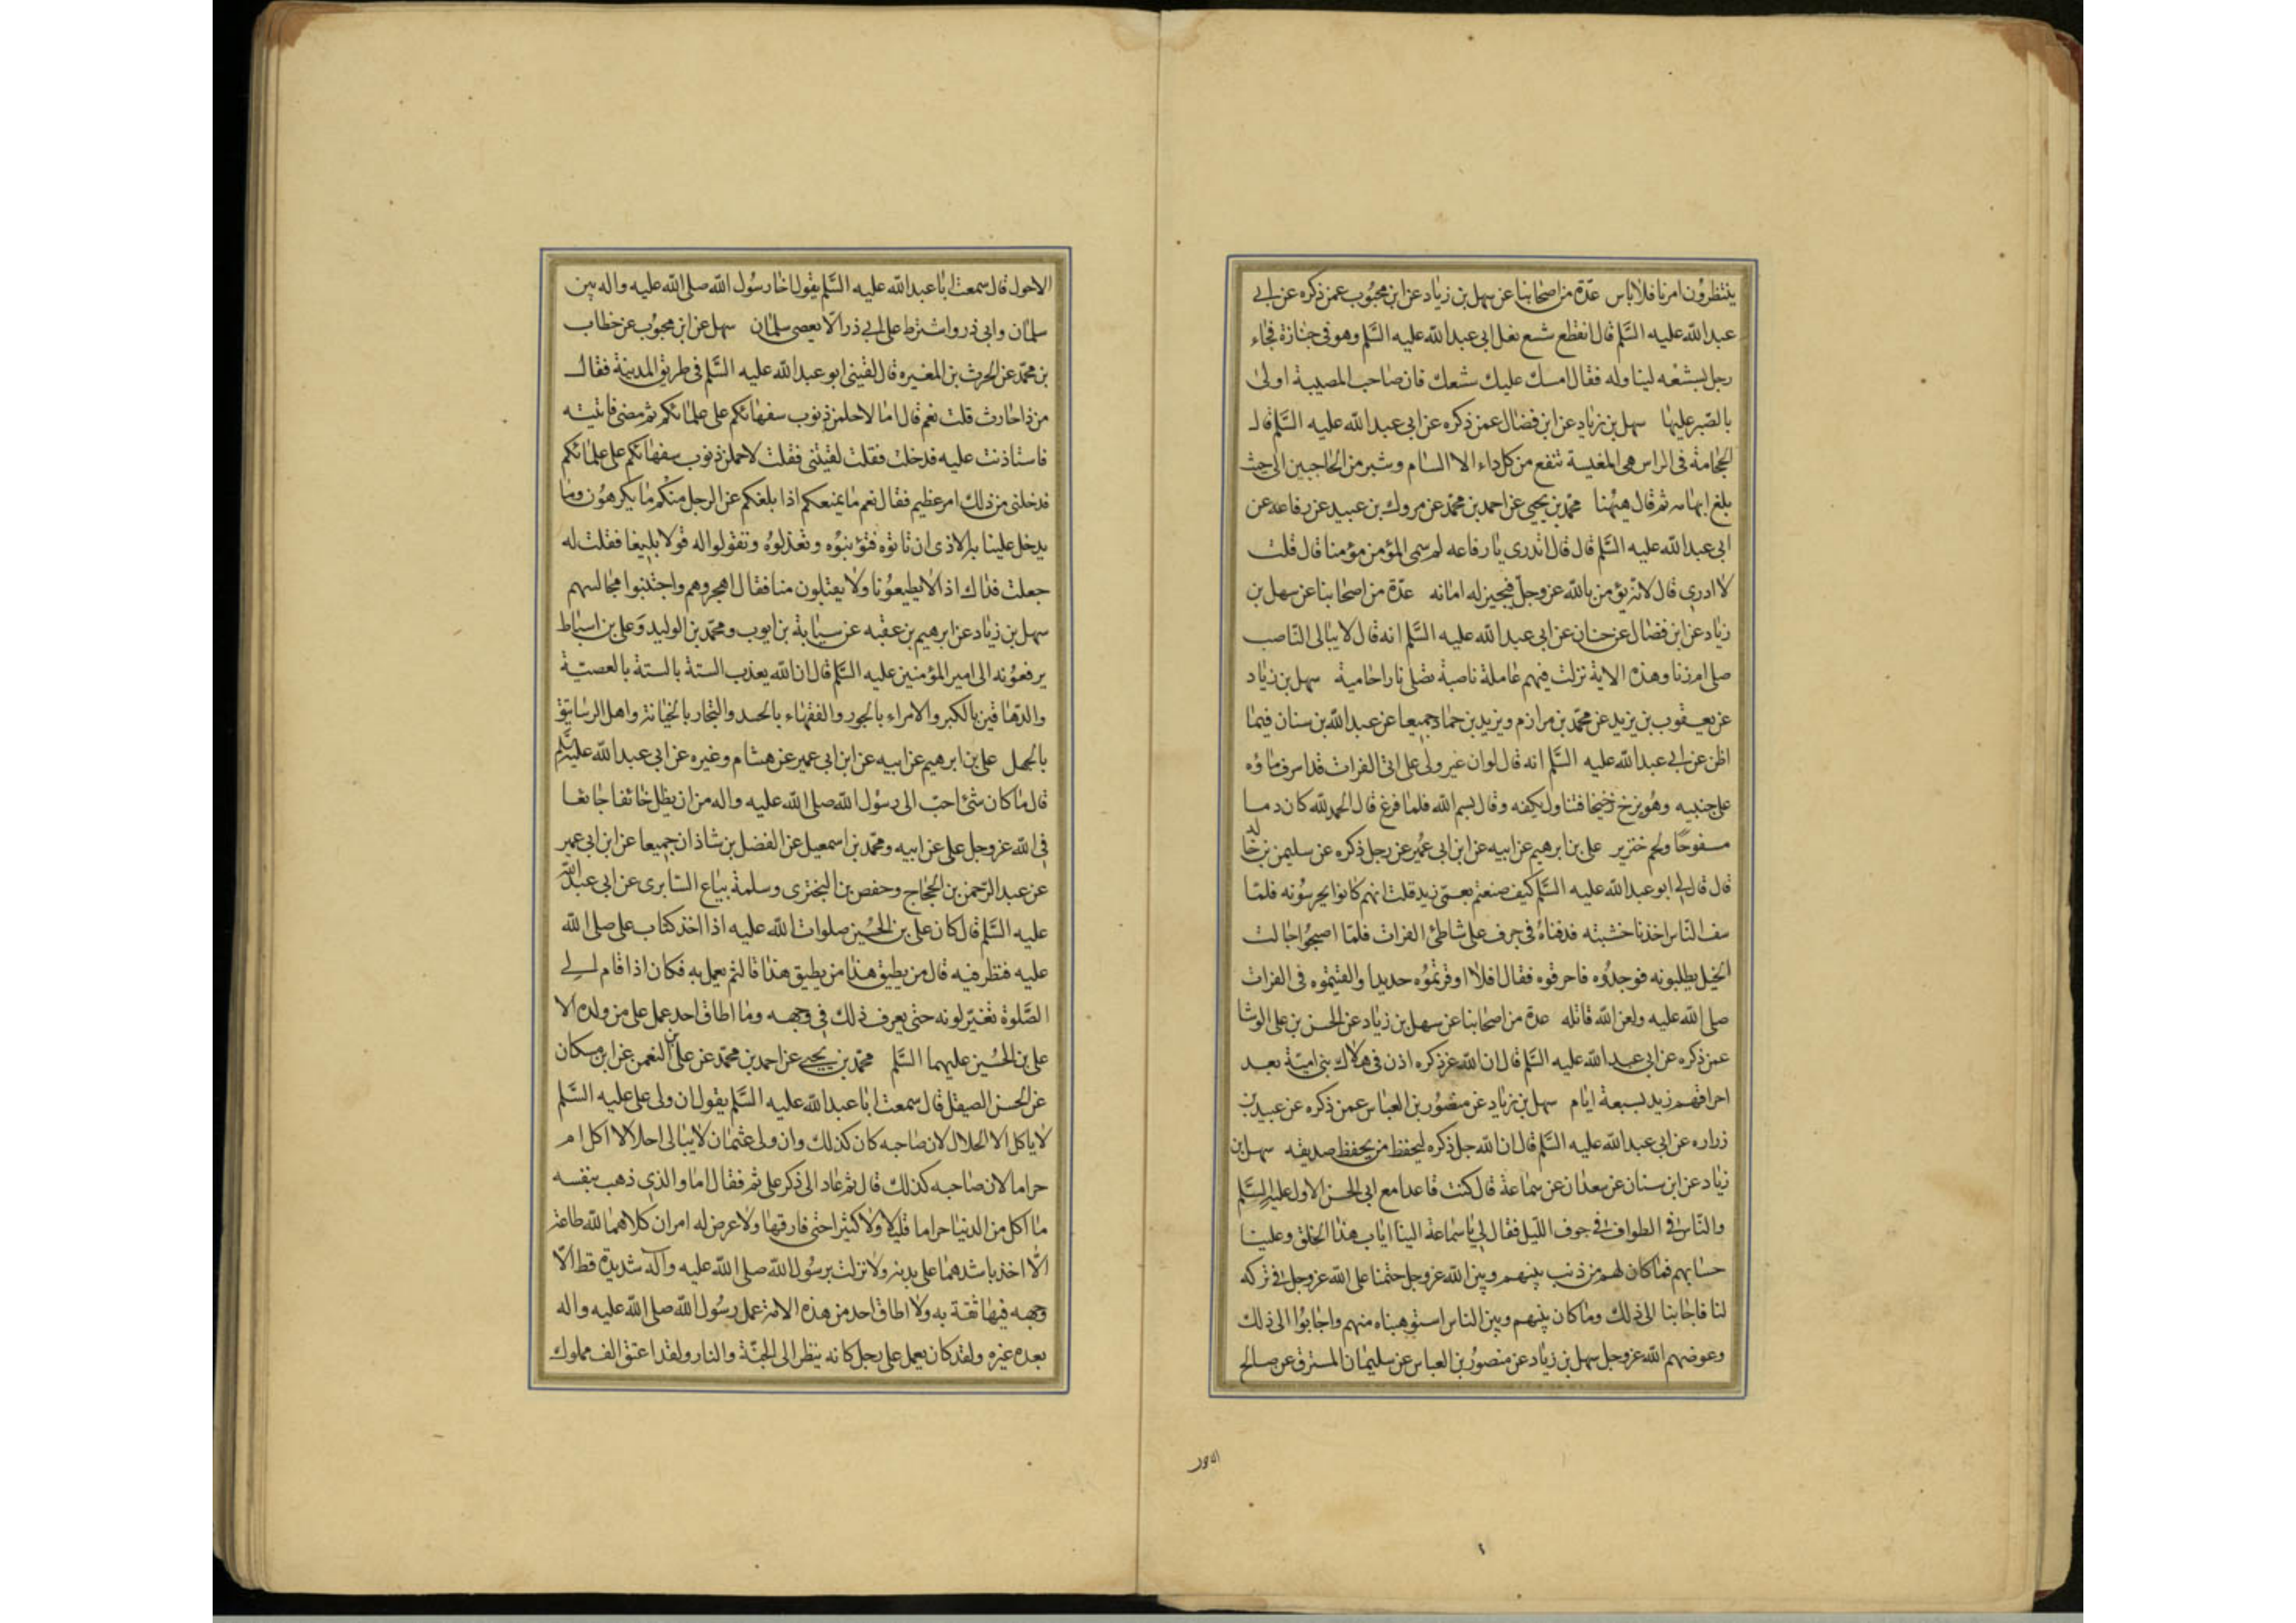 ينتظرون امرنا فلا باس عدّة من اصحابنا عن سهل بن زياد عن ابن محبوب عمن ذكره عن ابي
عبد الله عليه السَّلم قال انقطع شسع نعل ابى عبد الله عليه السَّلم وهو فى جنازة فجاء
رجل بشسعه ليناوله فقال امسك عليك شسعك فان صاحب المصيبة اولى
بالصّبر عليها سهل بن زياد عن ابن فضال عمن ذكره عن ابى عبد الله عليه السَّلم قال
الحجامة فى الراس هى المغيسة تنفع من كل داء الا السام وشبر من الحاجبين الى حيث
بلغ ابهامه ثم قال هيهنا محمّد بن يحيى عن احمد بن محمّد عن مروك بن عبيد عن رفاعه عن
ابى عبد الله عليه السَّلم قال قال اتدرى يا رفاعه لم سمى المؤمن مؤمنا قال قلت
لا ادرى قال لانه يؤمن بالله عز وجلّ فيجيز له امانه عدّة من اصحابنا عن سهل بن
زياد عن ابن فضال عن حنان عن ابى عبد الله عليه السَّلم انه قال لا يبالى النّاصب
صلى ام زنا وهذه الاية نزلت فيهم عاملة ناصبة تصلى نارا حامية سهل بن زياد
عن يعقوب بن يزيد عن محمّد بن مرازم ويزيد بن حماد جميعا عن عبد الله بن سنان فيما
اظن عن ابي عبد الله عليه السَّلم انه قال لو ان غير ولى على اتى الفرات قد اسرف ماؤه
على جنبيه وهو يزخ زخيخا فتناول بكفه وقال بسم الله فلما فرغ قال الحمد لله كان دما
مسفوحًا ولحم خنزير على بن ابرهيم عن ابيه عن ابن ابى عمير عن رجل ذكره عن سليمن بن خالد
قال قال لي ابو عبد الله عليه السَّلم كيف صنعتم بعمى زيد قلت انهم كانوا يحرسونه فلمّا
سف النّاس اخذنا خشبته فدفناه فى جرف على شاطئ الفرات فلمّا اصبحوا جالت
الخيل يطلبونه فوجدوه فاحرقوه فقال افلا اوقرتموه حديدا والقيتموه فى الفرات
صلى الله عليه ولعن الله قاتله عدة من اصحابنا عن سهل بن زياد عن الحسن بن على الوشا
عمن ذكره عن ابى عبد الله عليه السَّلم قال ان الله عز ذكره اذن فى هلاك بنى اميّة بعد
احراقهم زيد بسبعة ايام سهل بن زياد عن منصور بن العباس عمن ذكره عن عبيد بن
زراره عن ابى عبد الله عليه السَّلم قال ان الله جل ذكره ليحفظ من يحفظ صديقه سهل بن
زياد عن ابن سنان عن سعدان عن سماعة قال كنت قاعدا مع ابى الحسن الاول عليه السَّلم
والنّاس فى الطواف فى جوف الليل فقال لي يا سماعة الينا اياب هذا الخلق وعلينا
حسابهم فما كان لهم من ذنب بينهم وبين الله عز وجل حتمنا على الله عز وجل فى تركه
لنا فاجابنا الى ذلك وما كان بينهم وبين الناس استوهبناه منهم واجابوا الى ذلك
وعوضهم الله عز وجل سهل بن زياد عن منصور بن العباس عن سليمان المسترق عن صالح
الاحول
الاحول قال سمعت ابا عبد الله عليه السَّلم يقول اخا رسول الله صلى الله عليه واله بين
سلمان وابى ذر واشترط على ابي ذر الّا يعصى سلمان سهل عن ابن محبوب عن خطاب
بن محمّد عن الحرث بن المغيره قال لقينى ابو عبد الله عليه السَّلم فى طريق المدينة فقال
من ذا حارث قلت نعم قال اما لاحلمن ذنوب سفهائكم على علمائكم ثم مضى فاتيته
فاستاذنت عليه فدخلت فقلت لقيتنى فقلت لاحملن ذنوب سفهائكم على علمائكم
فدخلنى من ذلك امر عظيم فقال نعم ما يمنعكم اذا بلغكم عن الرجل منكم ما يكرهون وما
يدخل علينا به الاذى ان تاتوه فتؤنبوه وتعذلوه وتقولوا له قولا بليغا فقلت له
جعلت فداك اذا لا يطيعونا ولا يقبلون منا فقال اهجروهم واجتنبوا مجالسهم
سهل بن زياد عن ابرهيم بن عقبه عن سيابة بن ايوب ومحمّد بن الوليد وعلى بن اسباط
يرفعونه الى امير المؤمنين عليه السَّلم قال ان الله يعذب الستة بالستة بالعصبيّة
والدّهاقين بالكبر والامراء بالجور والفقهاء بالحسد والتجار بالخيانة واهل الرساتيق
بالجهل على بن ابرهيم عن ابيه عن ابن ابى عمير عن هشام وغيره عن ابى عبد الله عليه السَّلم
قال ما كان شئ احبّ الى رسول الله صلى الله عليه واله من ان يظل خائفا جائعا
فى الله عز وجل على عن ابيه ومحمّد بن اسمعيل عن الفضل بن شاذان جميعا عن ابن ابى عمير
عن عبد الرّحمن بن الحجاج وحفص بن البخترى وسلمة بياع السّابرى عن ابى عبد الله
عليه السَّلم قال كان على بن الحسين صلوات الله عليه اذا اخذ كتاب على صلى الله
عليه فنظر فيه قال من يطيق هذا من يطيق هذا قال ثم يعمل به فكان اذا قام الى
الصَّلوة تغيّر لونه حتى يعرف ذلك فى وجهه وما اطاق احد عمل على من ولده الا
على بن الحسين عليهما السَّلم محمّد بن يحيى عن احمد بن محمّد عن على بن النعمن عن ابن مسكان
عن الحسن الصيقل قال سمعت ابا عبد الله عليه السَّلم يقول ان ولى على عليه السَّلم
لا ياكل الا الحلال لان صاحبه كان كذلك وان ولى عثمان لا يبالى احلالا اكل ام
حراما لان صاحبه كذلك قال ثم عاد الى ذكر على ثم فقال اما والذى ذهب بنفسه
ما اكل من الدنيا حراما قليلا ولا كثيرا حتى فارقها ولا عرض له امران كلاهما لله طاعة
الّا اخذ باشدهما على بدنه ولا نزلت برسول الله صلى الله عليه وآله شديدة قط الّا
وجهه فيها ثقة به ولا اطاق احد من هذه الامة عمل رسول الله صلى الله عليه واله
بعده غيره ولقد كان يعمل عمل رجل كانه ينظر الى الجنّة والنار ولقد اعتق الف مملوك